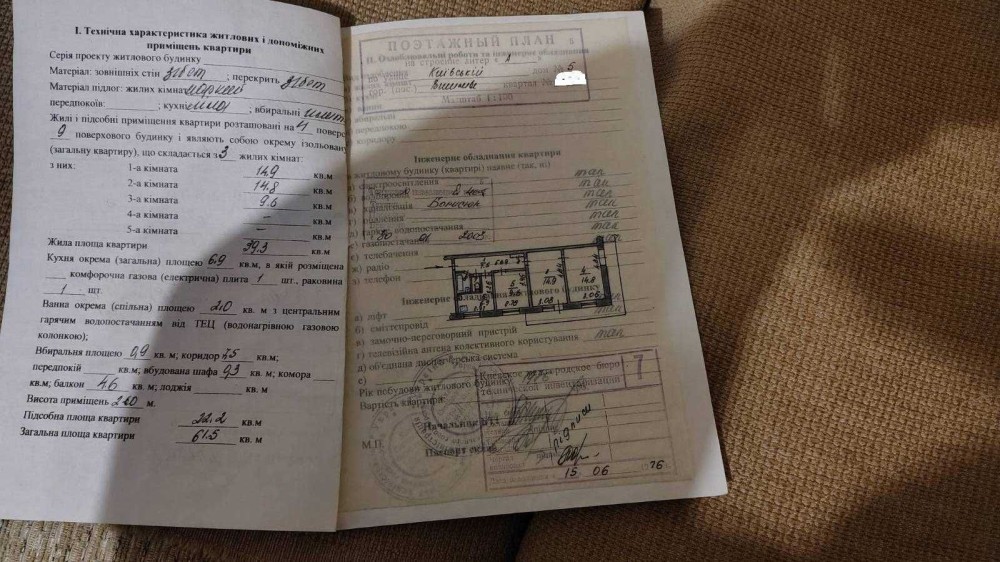 І. Технічна характеристика житлових і допоміжних
приміщень квартири
Серія проекту житлового будинку
Матеріал: зовнішніх стін з/бет ; перекрить з/бет
Матеріал підлог: жилих кімнат паркет
передпокоїв: ; кухні ; вбиральні
Жилі і підсобні приміщення квартири розташовані на 4 поверсі
9 поверхового будинку і являють собою окрему ізольовану
(загальну квартиру), що складається з 3 жилих кімнат:
з них:
1-а кімната 14.9 кв.м
2-а кімната 14.8 кв.м
3-а кімната 9.6 кв.м
4-а кімната – кв.м
5-а кімната – кв.м
Жила площа квартири 39.3 кв.м
Кухня окрема (загальна) площею 6.9 кв.м, в якій розміщена
комфорочна газова (електрична) плита 1 шт., раковина
1 шт.
Ванна окрема (спільна) площею 2.0 кв. м з центральним
гарячим водопостачанням від ТЕЦ (водонагрівною газовою
колонкою);
Вбиральня площею 0,9 кв. м; коридор 7,5 кв.м;
передпокій кв. м; вбудована шафа 0,3 кв.м; комора
кв.м; балкон 4.6 кв. м; лоджія кв. м
Висота приміщень 2.60 м.
Підсобна площа квартири 22.2 кв.м
Загальна площа квартири 61.5 кв. м
ПОЭТАЖНЫЙ ПЛАН
ІІ. Оздоблювальні роботи та інженерне обладнання
на строение литер « А »
Київській 5
гор. (пос.) Вишневе квартал №
Масштаб 1:100
вбиральні
передпокою
коридору
Інженерне обладнання квартири
житловому будинку (квартирі) наявне (так, ні)
а) електроосвітлення так
б) водопровід так
в) каналізація так
так
водопостачання
30 01 2003
є) газопостачання
е) телебачення
ж) радіо
з) телефон
14.9
14.8
Інженерне обладнання житлового будинку
а) ліфт
б) сміттєпровід
в) замочно-переговорний пристрій
г) телевізійна антена колективного користування так
д) об'єднана диспетчерська система
е)
Киевское городское бюро
технической инвентаризации
7
Рік побудови житлового будинку 1976
Вартість квартири:
Начальник БТІ
підписи
М.П.
Паспорт склав
15 06 1976